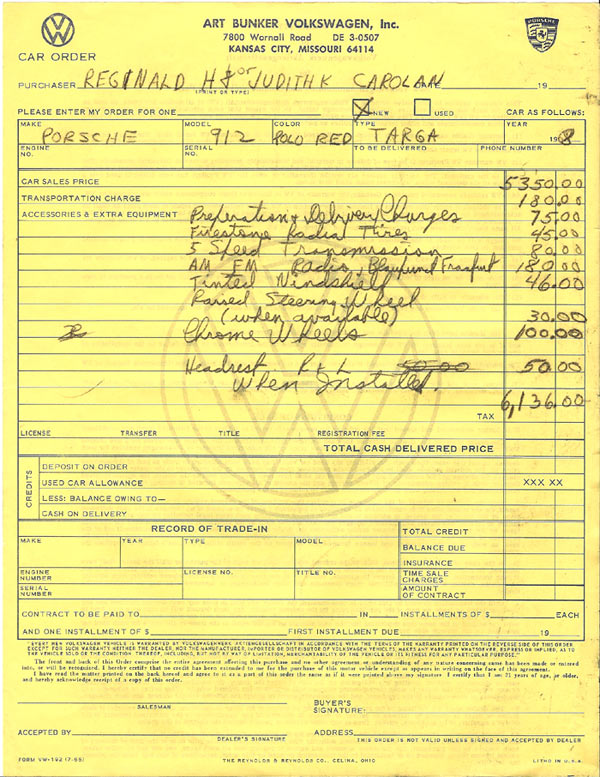 ART BUNKER VOLKSWAGEN, Inc.
7800 Wornall Road DE 3-0507
KANSAS CITY, MISSOURI 64114
PORSCHE
CAR ORDER
PURCHASER REGINALD H & or JUDITH K CAROLAN 19
(PRINT OR TYPE)
PLEASE ENTER MY ORDER FOR ONE X NEW USED CAR AS FOLLOWS:
MAKE MODEL COLOR TYPE YEAR
PORSCHE 912 POLO RED TARGA 1968
ENGINE NO. SERIAL NO. TO BE DELIVERED PHONE NUMBER
CAR SALES PRICE 5350.00
TRANSPORTATION CHARGE 180.00
ACCESSORIES & EXTRA EQUIPMENT Preperation & Delivery Charges 75.00
Firestone Radial Tires 45.00
5 Speed Transmission 80.00
AM FM Radio, Blaupunct Frankfurt 180.00
Tinted Windshield 46.00
Raised Steering Wheel
(when available) 30.00
Chrome Wheels 100.00
Headrest R & L 50.00 50.00
When Installed.
6,136.00
TAX
LICENSE TRANSFER TITLE REGISTRATION FEE
TOTAL CASH DELIVERED PRICE
CREDITS
DEPOSIT ON ORDER
USED CAR ALLOWANCE XXX XX
LESS: BALANCE OWING TO—
CASH ON DELIVERY
RECORD OF TRADE-IN TOTAL CREDIT
MAKE YEAR TYPE MODEL BALANCE DUE
INSURANCE
ENGINE NUMBER LICENSE NO. TITLE NO. TIME SALE CHARGES
SERIAL NUMBER AMOUNT OF CONTRACT
CONTRACT TO BE PAID TO IN INSTALLMENTS OF $ EACH
AND ONE INSTALLMENT OF $ FIRST INSTALLMENT DUE 19
"EVERY NEW VOLKSWAGEN VEHICLE IS WARRANTED BY VOLKSWAGENWERK AKTIENGESELLSCHAFT IN ACCORDANCE WITH THE TERMS OF THE WARRANTY PRINTED ON THE REVERSE SIDE OF THIS ORDER
EXCEPT FOR SUCH WARRANTY NEITHER THE DEALER, NOR THE MANUFACTURER, IMPORTER OR DISTRIBUTOR OF VOLKSWAGEN VEHICLES, MAKES ANY WARRANTY WHATSOEVER, EXPRESS OR IMPLIED, AS TO
THE VEHICLE SOLD OR THE CONDITION THEREOF, INCLUDING, BUT NOT BY WAY OF LIMITATION, MERCHANTABILITY OF THE VEHICLE OR ITS FITNESS FOR ANY PARTICULAR PURPOSE."
The front and back of this Order comprise the entire agreement affecting this purchase and no other agreement or understanding of any nature concerning same has been made or entered
into, or will be recognized. I hereby certify that no credit has been extended to me for the purchase of this motor vehicle except as appears in writing on the face of this agreement.
I have read the matter printed on the back hereof and agree to it as a part of this order the same as if it were printed above my signature. I certify that I am 21 years of age, or older,
and hereby acknowledge receipt of a copy of this order.
SALESMAN
BUYER'S SIGNATURE:
ACCEPTED BY ADDRESS
DEALER'S SIGNATURE THIS ORDER IS NOT VALID UNLESS SIGNED AND ACCEPTED BY DEALER
FORM VW-192 (7-66) THE REYNOLDS & REYNOLDS CO., CELINA, OHIO LITHO IN U.S.A.